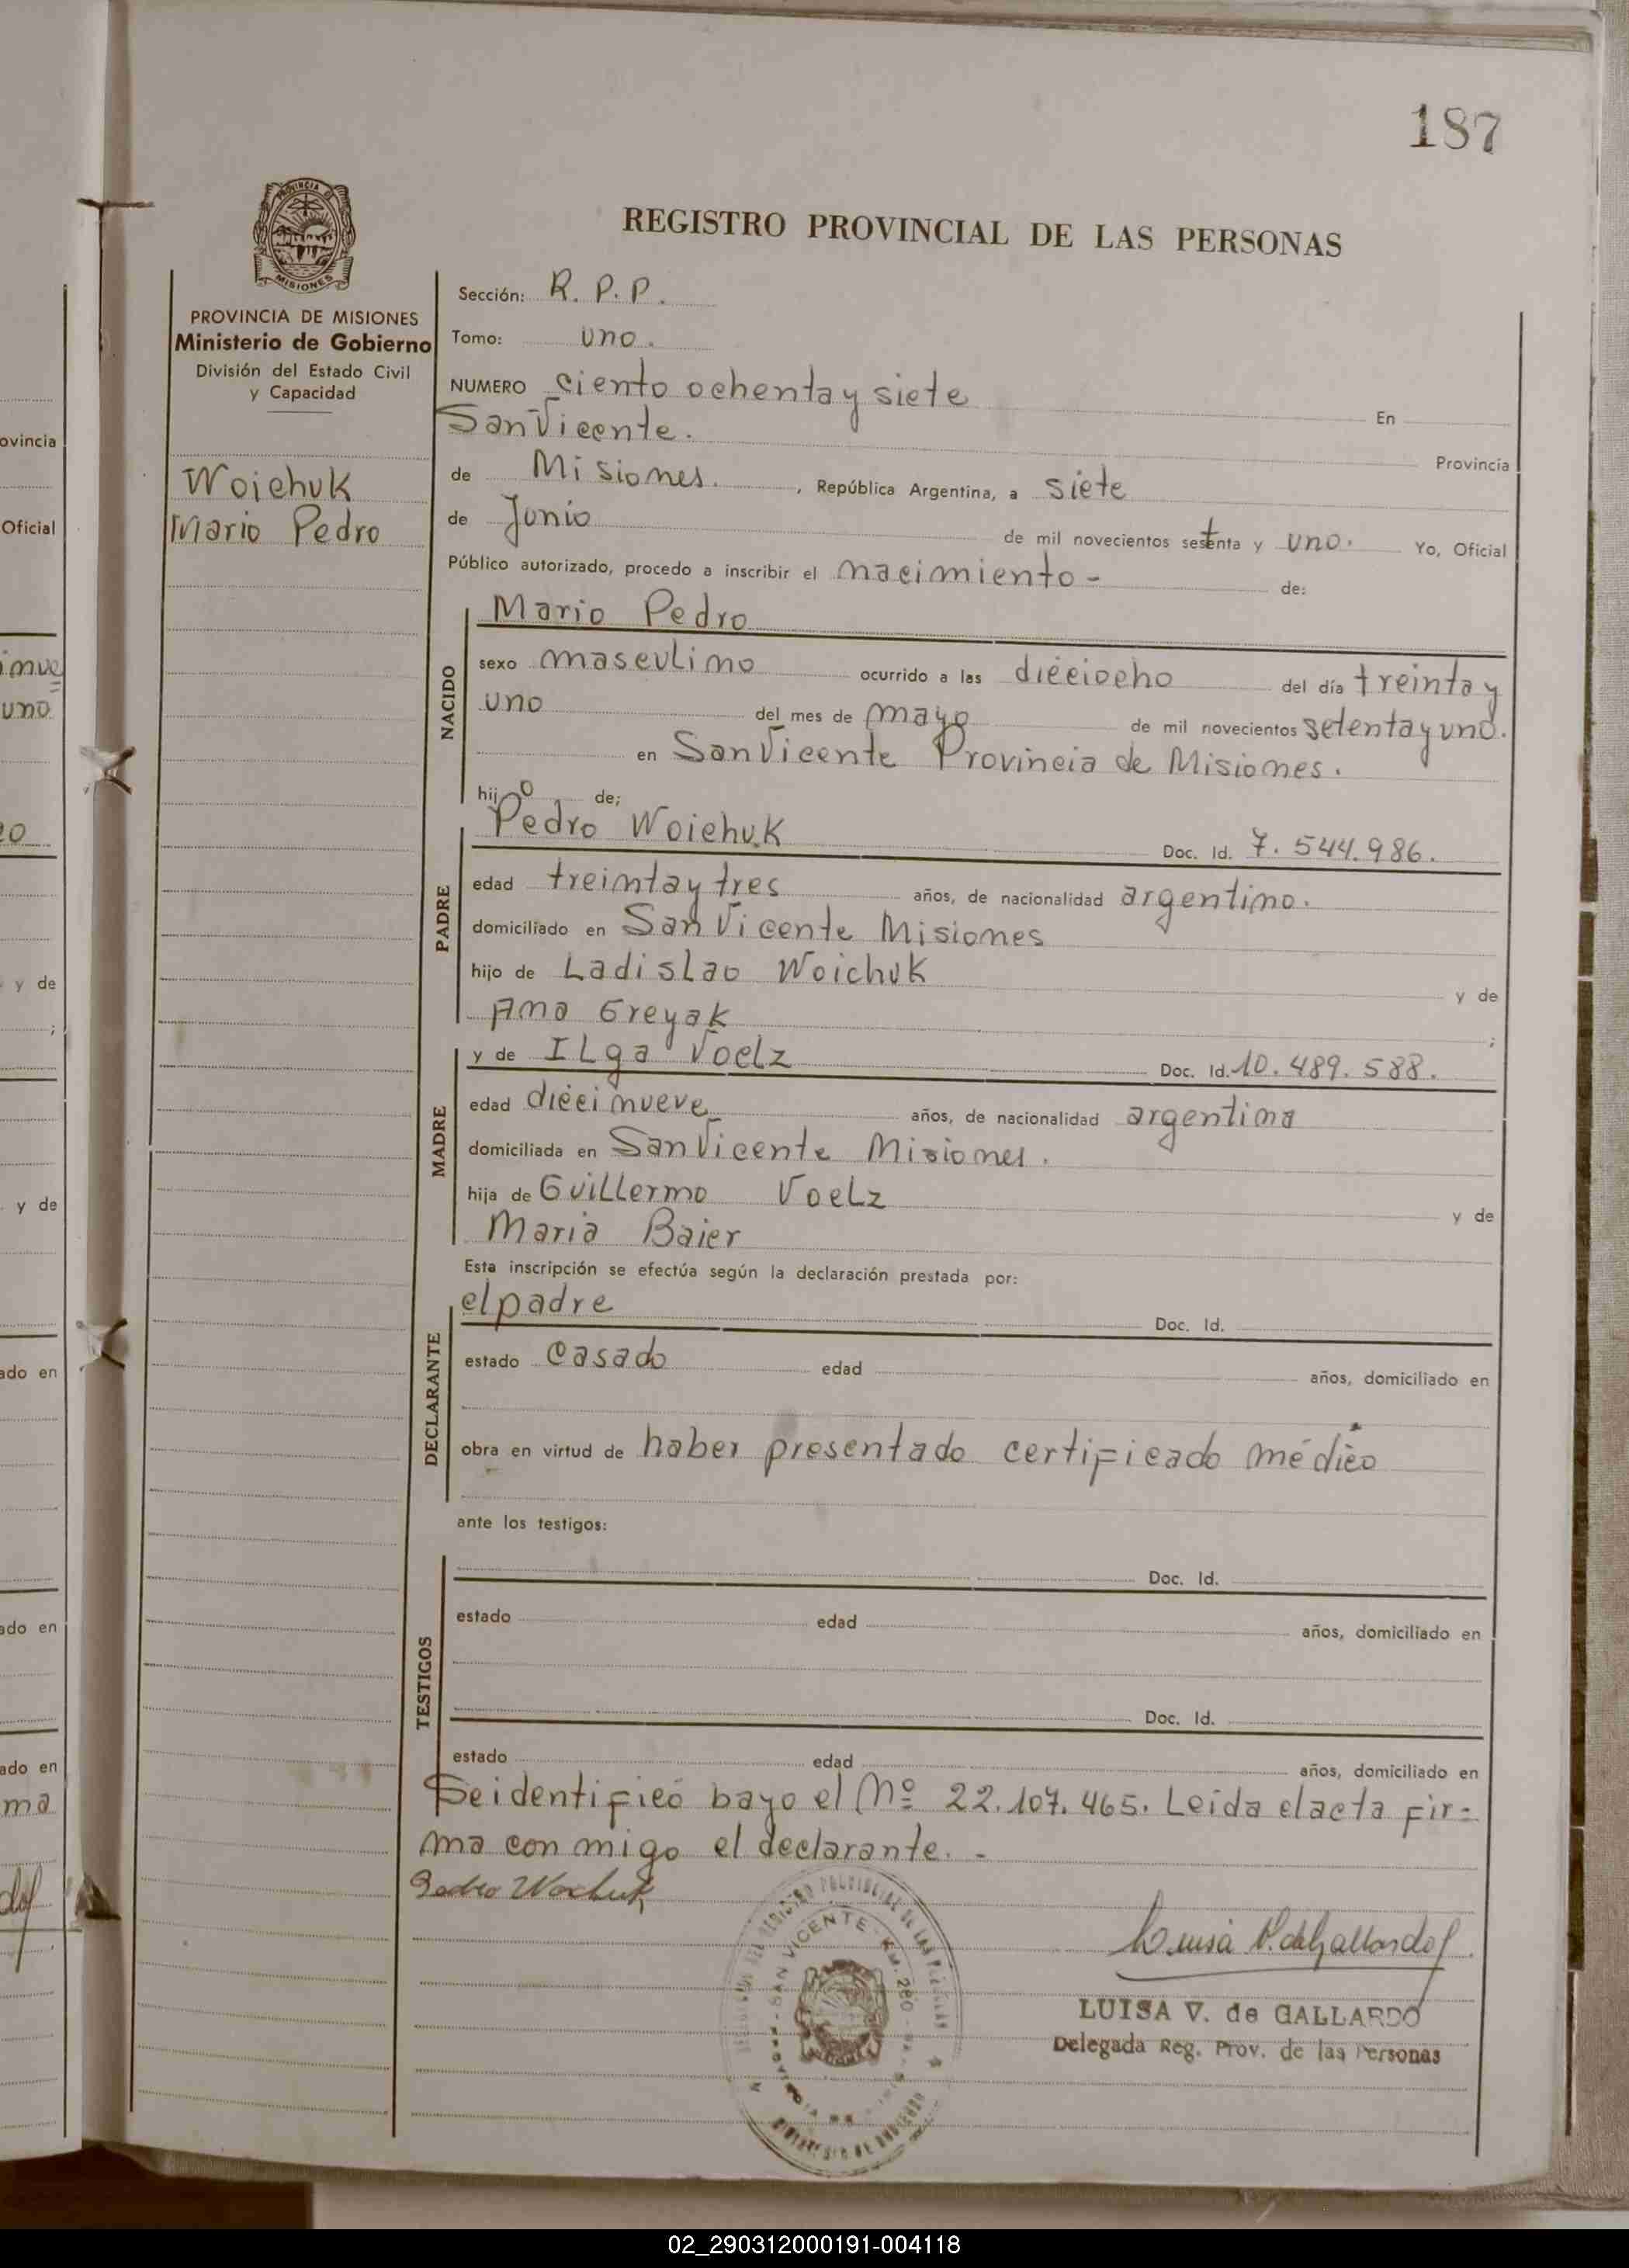 187
PROVINCIA DE
MISIONES
REGISTRO PROVINCIAL DE LAS PERSONAS
PROVINCIA DE MISIONES
Ministerio de Gobierno
División del Estado Civil
y Capacidad
Woichuk
Mario Pedro
Sección: R. P. P.
Tomo: uno.
NUMERO ciento ochenta y siete En
San Vicente. Provincia
de Misiones. , República Argentina, a siete
de Junio de mil novecientos setenta y uno. Yo, Oficial
Público autorizado, procedo a inscribir el nacimiento - de:
NACIDO
Mario Pedro
sexo masculino ocurrido a las dieciocho del día treinta y
uno del mes de mayo de mil novecientos setenta y uno.
en San Vicente Provincia de Misiones.
hijo de;
PADRE
Pedro Woichuk Doc. Id. 7.544.986.
edad treinta y tres años, de nacionalidad argentino.
domiciliado en San Vicente Misiones
hijo de Ladislao Woichuk y de
Ana Greyak ;
MADRE
y de ILga Voelz Doc. Id. 10.489.588.
edad diecinueve años, de nacionalidad argentina
domiciliada en San Vicente Misiones.
hija de Guillermo Voelz y de
Maria Baier
Esta inscripción se efectúa según la declaración prestada por:
DECLARANTE
el padre Doc. Id.
estado casado edad años, domiciliado en
obra en virtud de haber presentado certificado médico
ante los testigos:
TESTIGOS
Doc. Id.
estado edad años, domiciliado en
Doc. Id.
estado edad años, domiciliado en
Se identificó bayo el Nº 22.107.465. Leida el acta fir=
ma con migo el declarante. -
Pedro Woichuk
SAN VICENTE - Km. 280
Luisa V. de Gallardo
LUISA V. de GALLARDO
Delegada Reg. Prov. de las Personas
ovincia
Oficial
inue
uno
y de
;
y de
ado en
ado en
ado en
ma
02_290312000191-004118